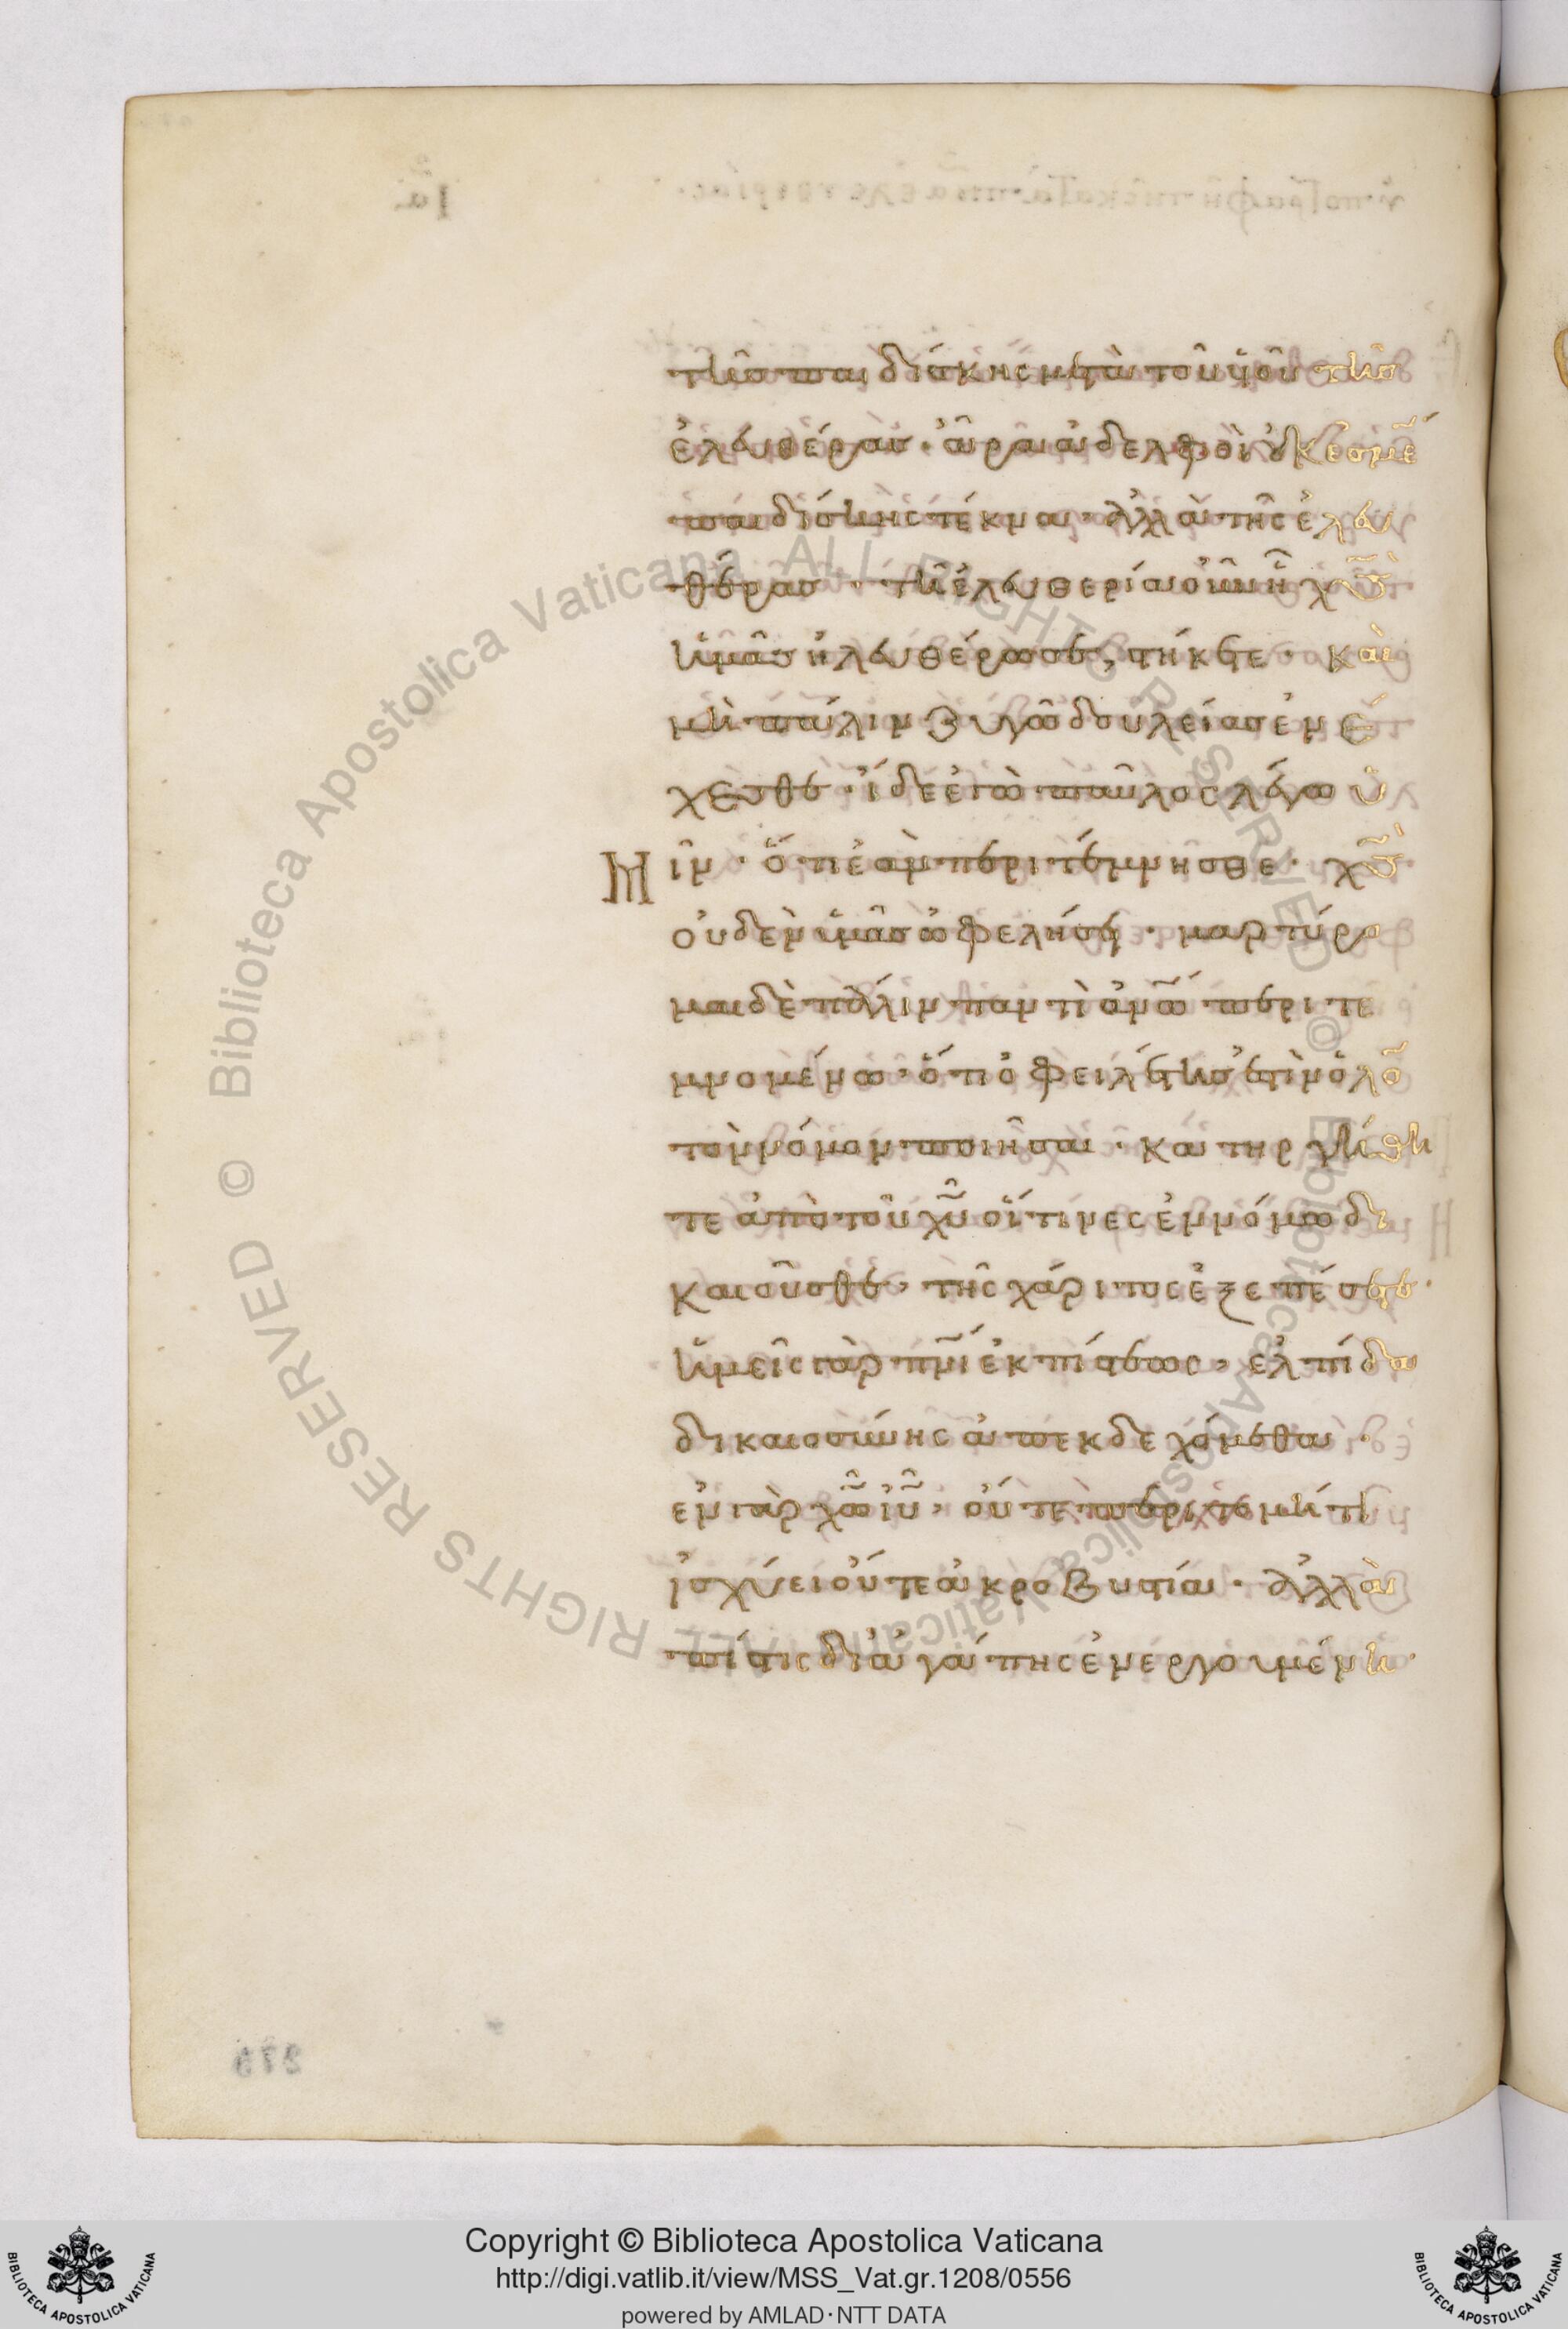 τῆς παιδίσκης μετὰ τοῦ υἱοῦ τῆς
ἐλευθέρας · ἄρα ἀδελφοὶ οὐκ ἐσμὲ
παιδίσκης τέκνα · ἀλλὰ τῆς ἐλευ
θέρας · τῆ ἐλευθερία οὖν ἧ χς
ἡμᾶς ἠλευθέρωσε, στήκετε · καὶ
μὴ πάλιν ζυγῶ δουλείας ἐνέ
χεσθε · ἴδε ἐγὼ παῦλος λέγω ὑ
μῖν · ὅτι ἐὰν περιτέμνησθε · χς
οὐδὲν ὑμᾶς ὠφελήσει · μαρτύρο
μαι δὲ πάλιν παντὶ ἀνω περιτε
μνομένω · ὅτι ὀφειλέτης ἐστὶν ὅλο
τὸν νόμον ποιῆσαι · κατηργήθη
τε ἀπὸ τοῦ χυ οἵτινες ἐν νόμω δι
καιοῦσθε, τῆς χάριτος ἐξεπέσετε ·
ἡμεῖς γὰρ πνι ἐκ πίστεως, ἐλπίδα
δικαιοσύνης ἀπεκδεχόμεθα ·
ἐν γὰρ χω ιυ, οὔτε περιτομή τι
ἰσχύει οὔτε ἀκροβυστία · ἀλλὰ
πίστις δι ἀγάπης ἐνεργουμένη ·
Copyright © Biblioteca Apostolica Vaticana
http://digi.vatlib.it/view/MSS_Vat.gr.1208/0556
powered by AMLAD·NTT DATA
BIBLIOTECA APOSTOLICA VATICANA
BIBLIOTECA APOSTOLICA VATICANA
© Biblioteca Apostolica Vaticana ALL RIGHTS RESERVED
© Biblioteca Apostolica Vaticana ALL RIGHTS RESERVED
275